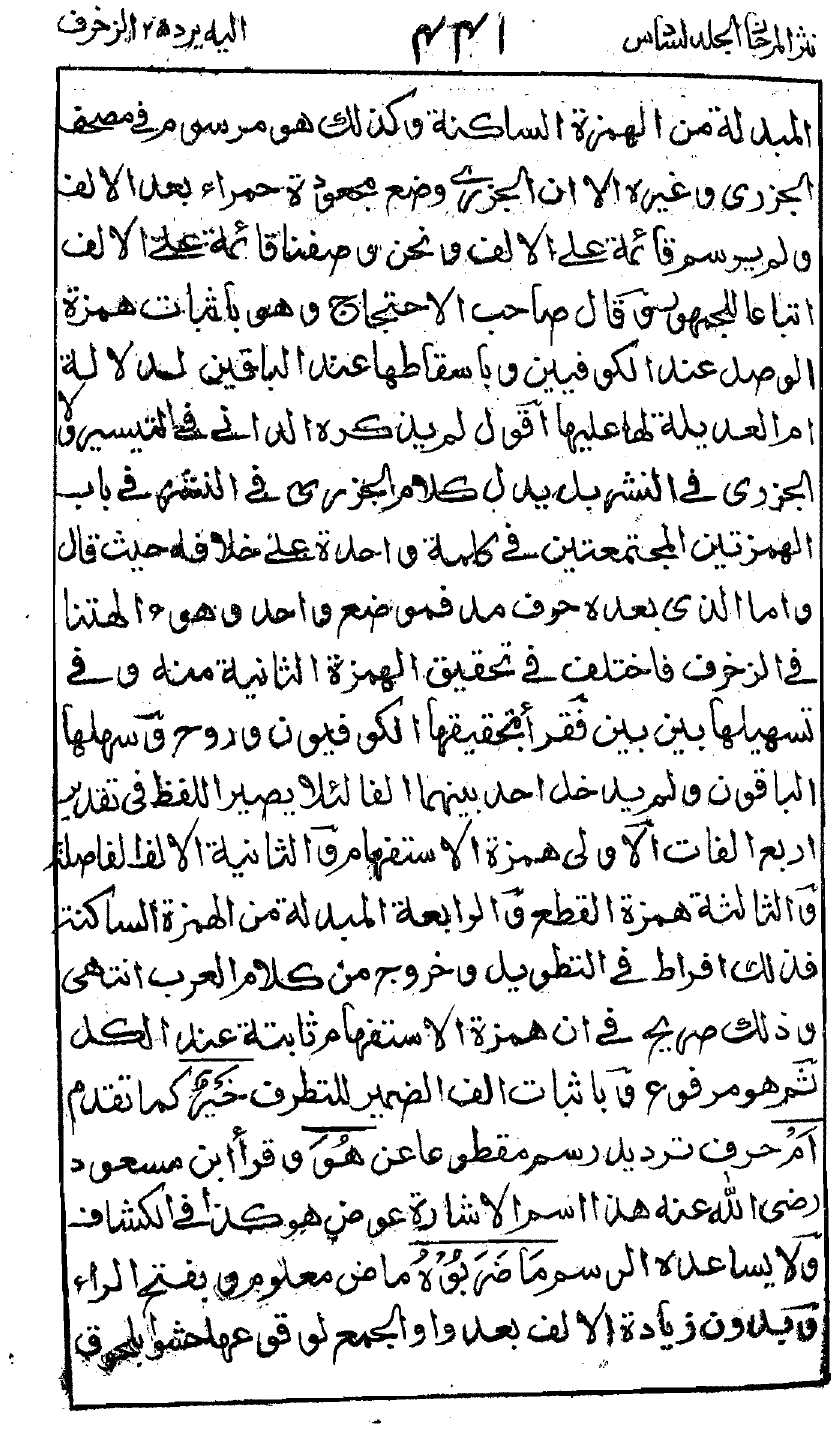 نثر المرجان الجلد السادس ٤٤١ اليه يرد ٢٥ الزخرف
المبدلة من الهمزة الساكنة وكذلك هو مرسوم في مصحف
الجزرى وغيره الا ان الجزرى وضع مجعودة حمراء بعد الالف
ولم يرسم قائمة على الالف ونحن وصفنا قائمة على الالف
اتباعا للجمهور وقال صاحب الاحتجاج وهو باثبات همزة
الوصل عند الكوفيين وباسقاطها عند الباقين لدلالة
ام العديلة لها عليها أقول لم يذكره الدانى في التيسير ولا
الجزرى في النشر بل يدل كلام الجزرى في النشر في باب
الهمزتين المجتمعتين في كلمة واحدة على خلافه حيث قال
واما الذى بعده حرف مد فموضع واحد وهو ءالهتنا
في الزخرف فاختلف في تحقيق الهمزة الثانية منه وفي
تسهيلها بين بين فقرأ بتحقيقها الكوفيون وروح وسهلها
الباقون ولم يدخل احد بينهما الفا لئلا يصير اللفظ فى تقدير
اربع الفات الاولى همزة الاستفهام والثانية الالف الفاصلة
والثالثة همزة القطع والرابعة المبدلة من الهمزة الساكنة
فذلك افراط في التطويل وخروج من كلام العرب انتهى
وذلك صريح في ان همزة الاستفهام ثابتة عند الكل
ثم هو مرفوع وباثبات الف الضمير للتطرف خَيْرٌ كما تقدم
اَمْ حرف ترديد رسم مقطوعا عن هُوَ وقرأ ابن مسعود
رضى الله عنه هذا اسم الاشارة عوض هو كذا في الكشاف
ولا يساعده الرسم مَا ضَرَبُوْهُ ماض معلوم وبفتح الراء
وبدون زيادة الالف بعد واو الجمع لوقوعها حشوا بلحوق